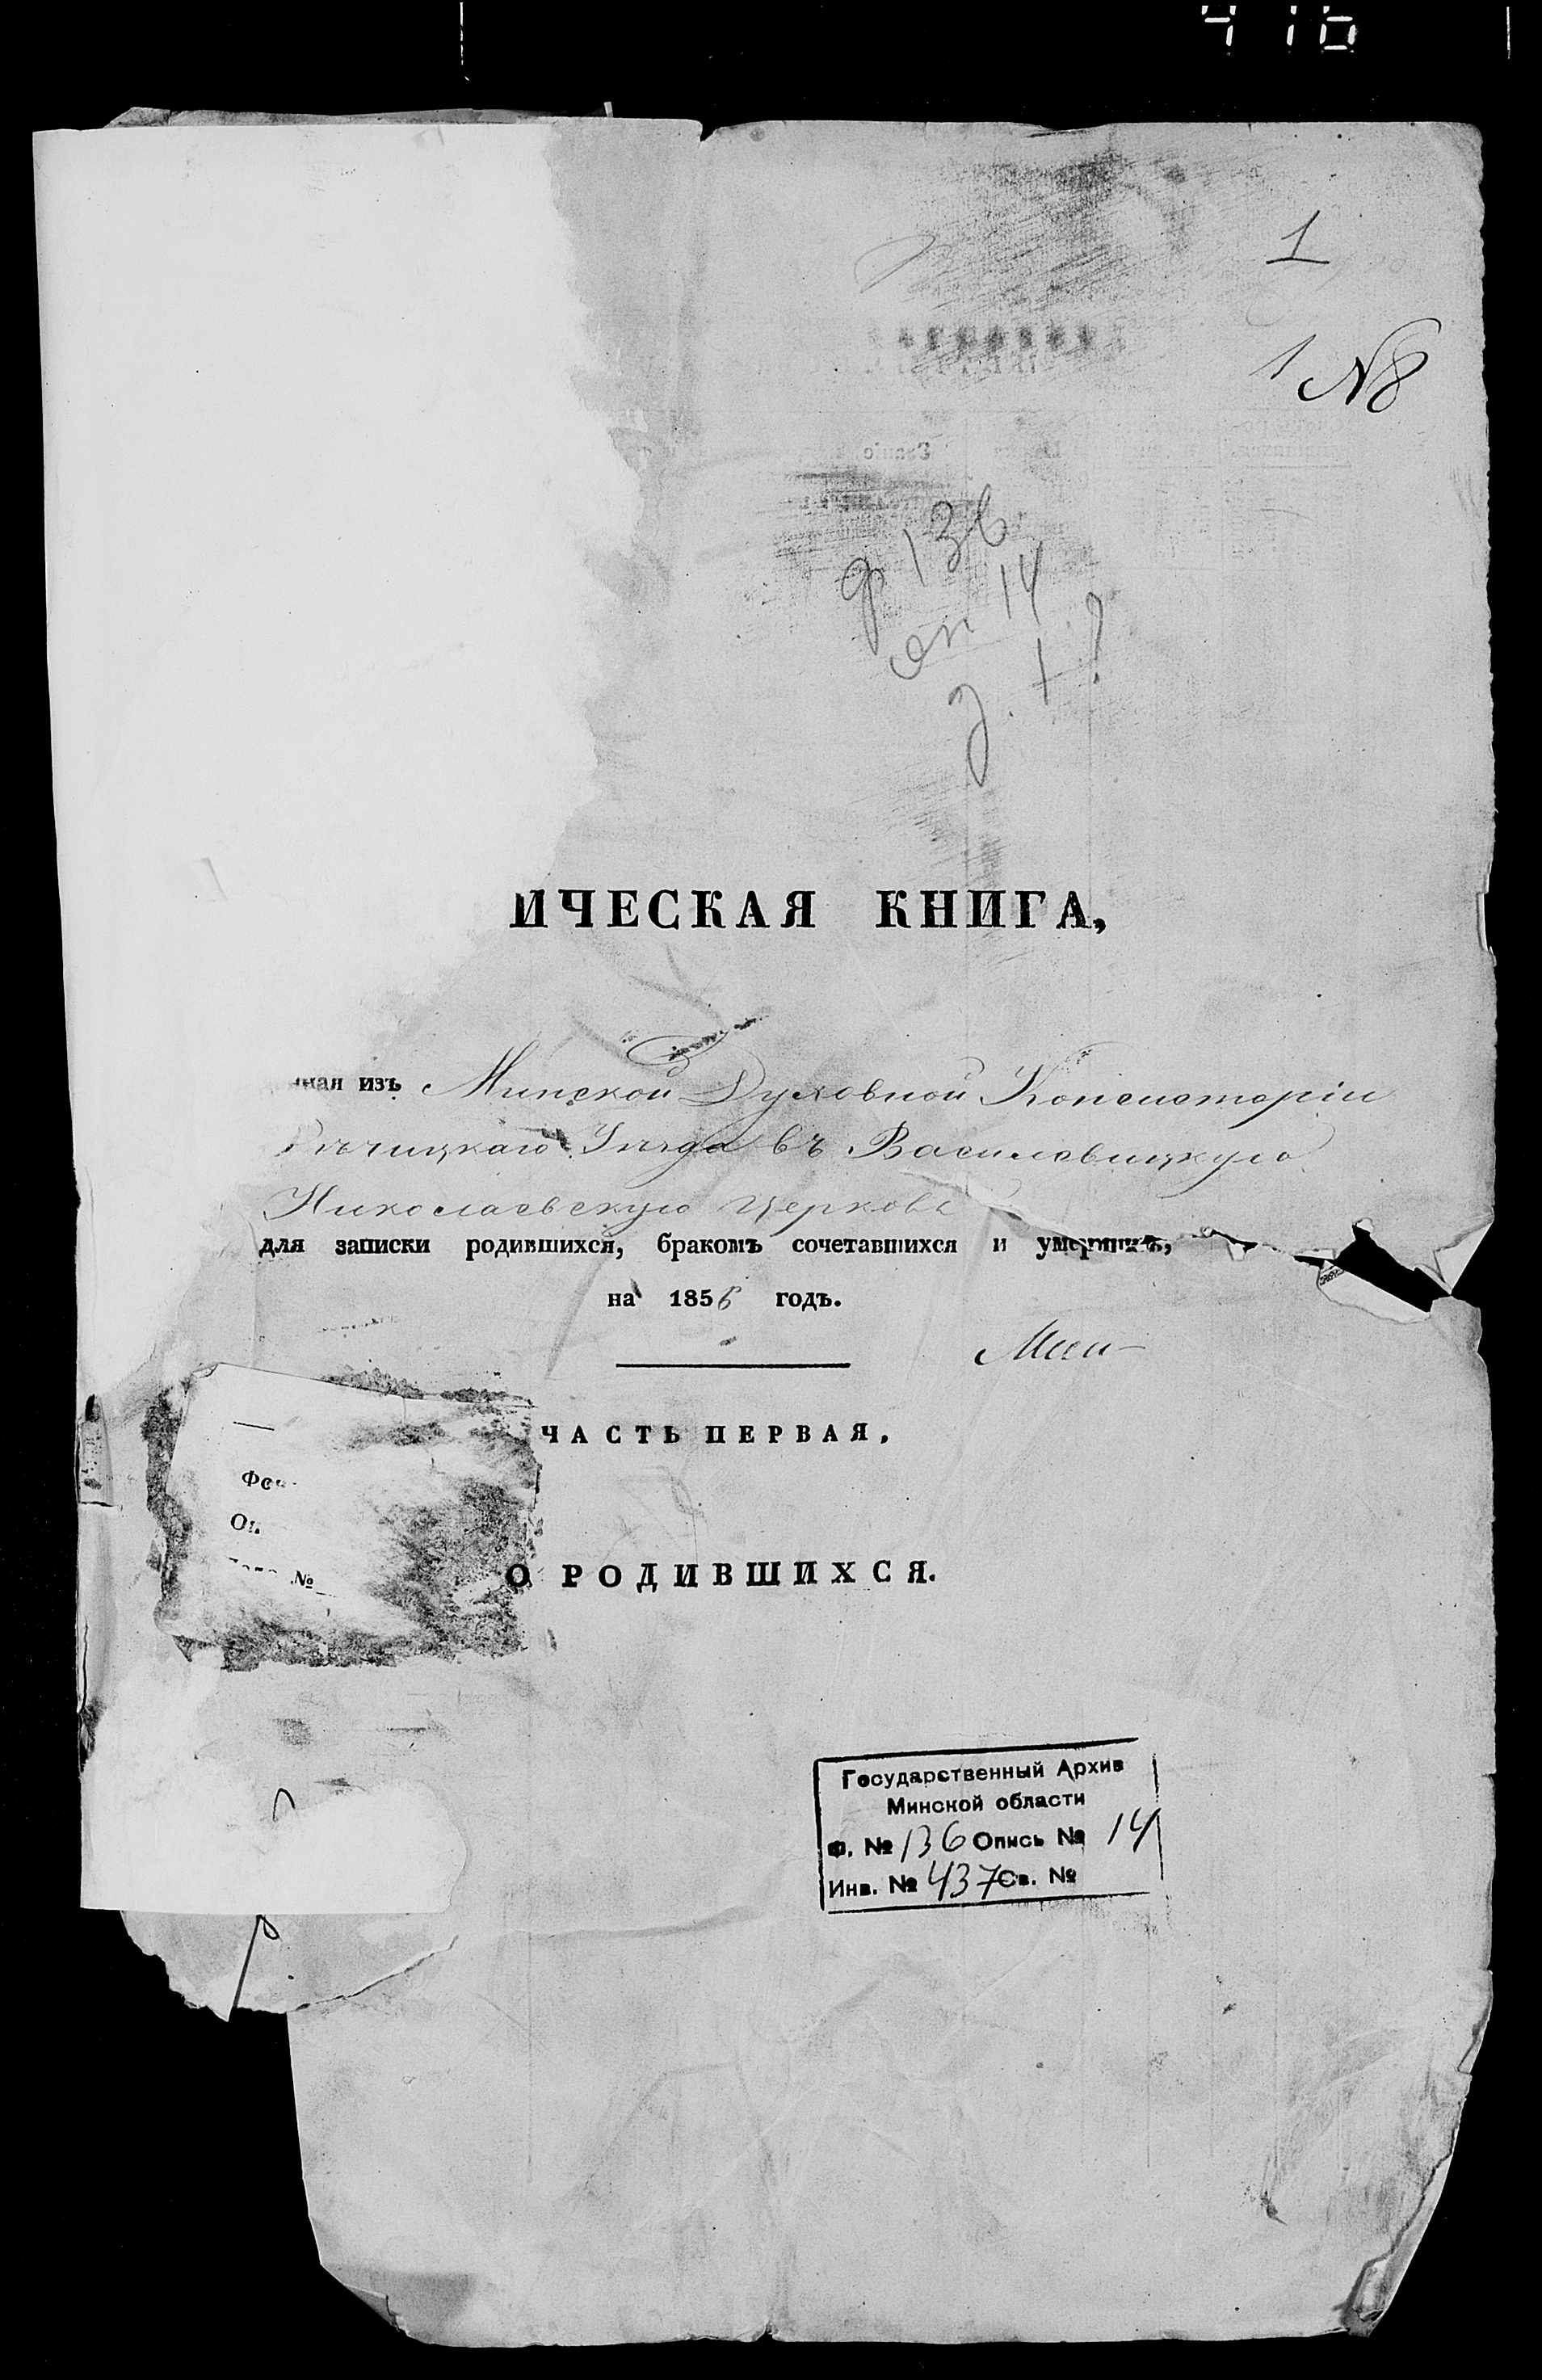 416
1
1 №8
ф 136
оп 14
д. 1?
ИЧЕСКАЯ КНИГА,
ная изъ Минской Духовной Консисторіи
Рѣчицкаго Уѣзда въ Василевицкую
Николаевскую Церковь
для записки родившихся, бракомъ сочетавшихся и умершихъ,
на 1856 годъ.
ЧАСТЬ ПЕРВАЯ,
О РОДИВШИХСЯ.
№
Государственный Архив
Минской области
Ф. № 136 Опись № 14
Инв. № 437 Св. №